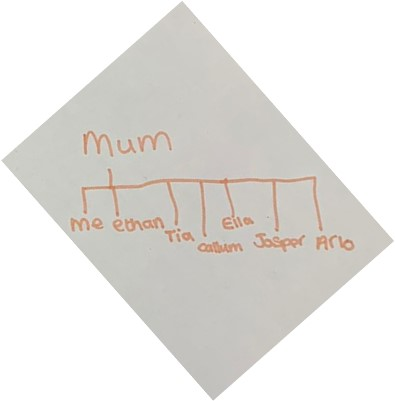 Mum
Me ethan Tia callum Ella Jasper Arlo